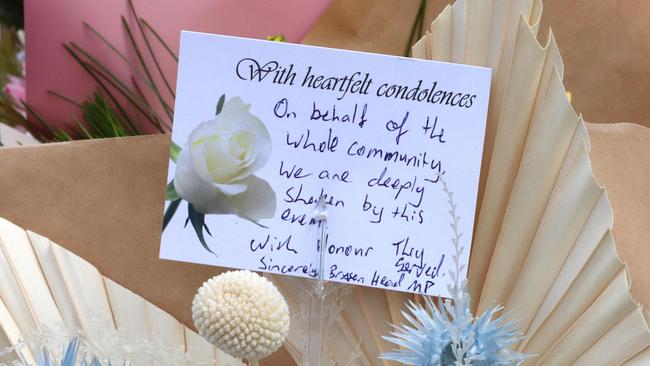 With heartfelt condolences
On behalf of the
whole community,
we are deeply
Shaken by this
even
With Honour They
Served.
Sincerely Bryson Head MP